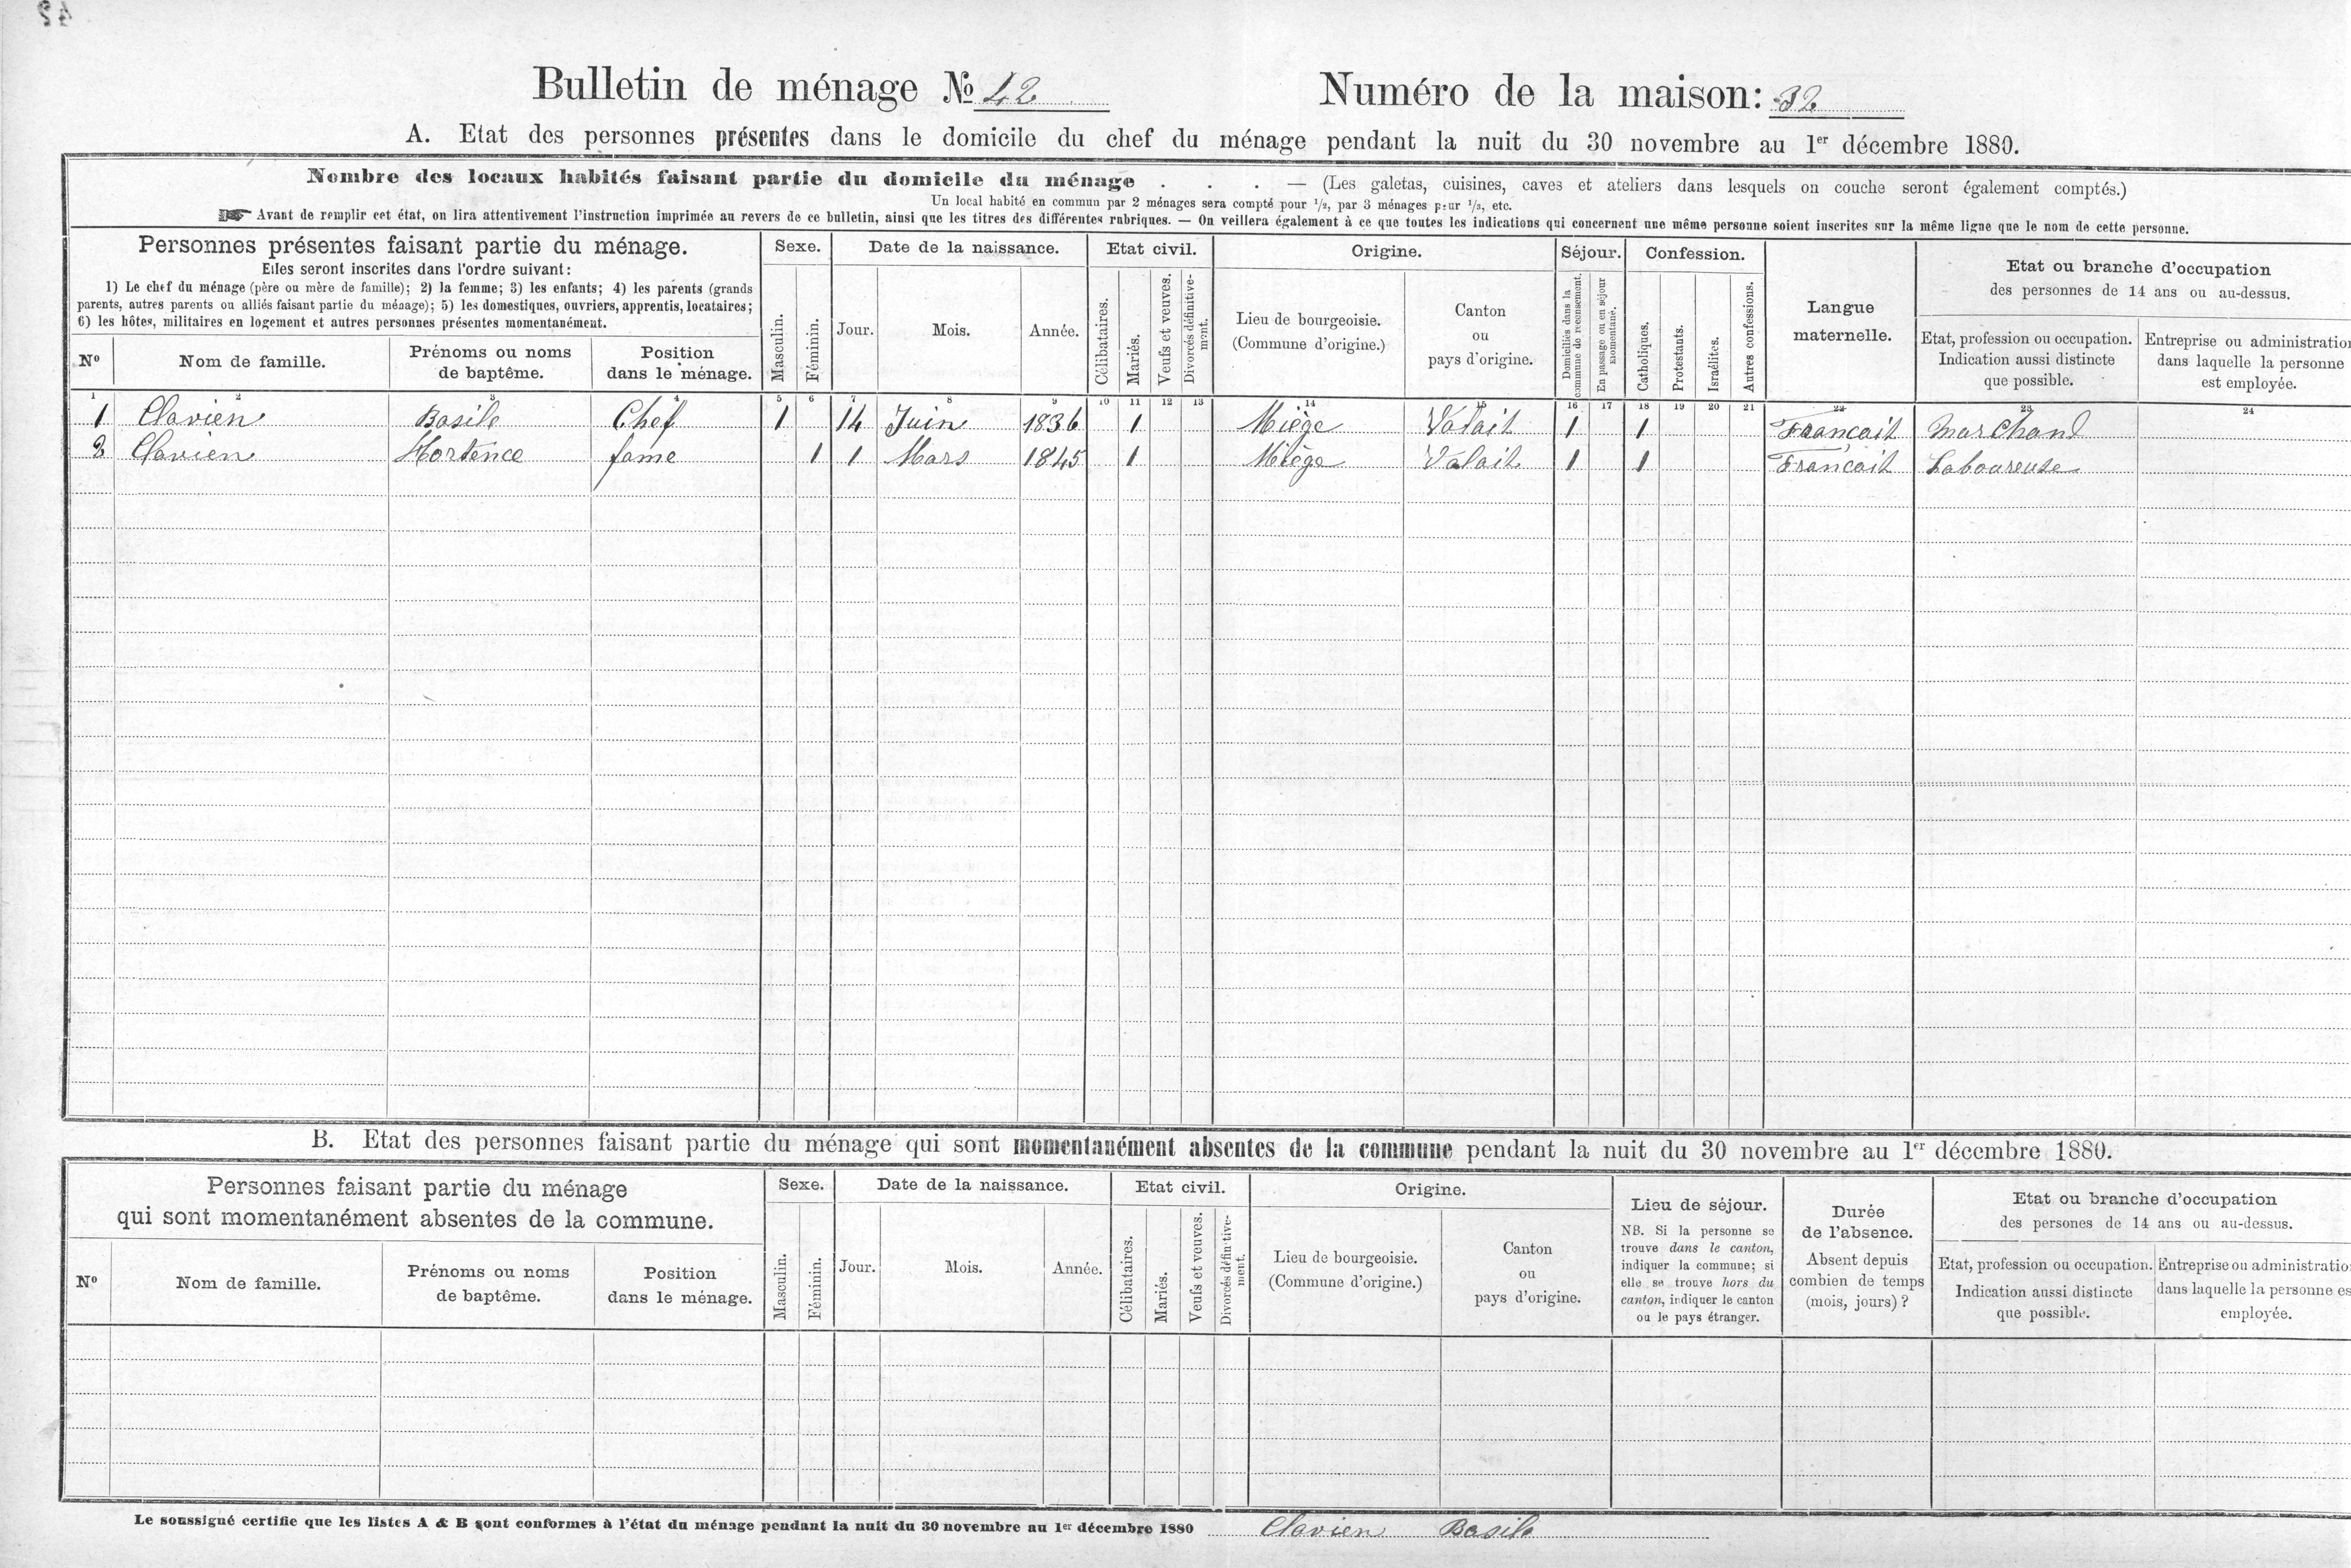 42
Bulletin de ménage No 42
Numéro de la maison: 32
A. Etat des personnes présentes dans le domicile du chef du ménage pendant la nuit du 30 novembre au 1er décembre 1880.
Nombre des locaux habités faisant partie du domicile du ménage . . . — (Les galetas, cuisines, caves et ateliers dans lesquels on couche seront également comptés.)
Un local habité en commun par 2 ménages sera compté pour 1/2, par 3 ménages pour 1/3, etc.
☞ Avant de remplir cet état, on lira attentivement l'instruction imprimée au revers de ce bulletin, ainsi que les titres des différentes rubriques. — On veillera également à ce que toutes les indications qui concernent une même personne soient inscrites sur la même ligne que le nom de cette personne.
Personnes présentes faisant partie du ménage.
Elles seront inscrites dans l'ordre suivant:
1) Le chef du ménage (père ou mère de famille); 2) la femme; 3) les enfants; 4) les parents (grands
parents, autres parents ou alliés faisant partie du ménage); 5) les domestiques, ouvriers, apprentis, locataires;
6) les hôtes, militaires en logement et autres personnes présentes momentanément.
No
Nom de famille.
Prénoms ou noms
de baptême.
Position
dans le ménage.
Sexe.
Masculin.
Féminin.
Date de la naissance.
Jour.
Mois.
Année.
Etat civil.
Célibataires.
Mariés.
Veufs et veuves.
Divorcés définitive-
ment.
Origine.
Lieu de bourgeoisie.
(Commune d'origine.)
Canton
ou
pays d'origine.
Séjour.
Domiciliés dans la
commune de recensement.
En passage ou en séjour
momentané.
Confession.
Catholiques.
Protestants.
Israélites.
Autres confessions.
Langue
maternelle.
Etat ou branche d'occupation
des personnes de 14 ans ou au-dessus.
Etat, profession ou occupation.
Indication aussi distincte
que possible.
Entreprise ou administratio
dans laquelle la personne
est employée.
1 2 3 4 5 6 7 8 9 10 11 12 13 14 15 16 17 18 19 20 21 22 23 24
1 Clavien Basile Chef 1 14 Juin 1836 1 Miège Valait 1 1 Françait Marchand
2 Clavien Hortence fame 1 1 Mars 1845 1 Miège Valait 1 1 Françait Laboureuse
B. Etat des personnes faisant partie du ménage qui sont momentanément absentes de la commune pendant la nuit du 30 novembre au 1er décembre 1880.
Personnes faisant partie du ménage
qui sont momentanément absentes de la commune.
No
Nom de famille.
Prénoms ou noms
de baptême.
Position
dans le ménage.
Sexe.
Masculin.
Féminin.
Date de la naissance.
Jour.
Mois.
Année.
Etat civil.
Célibataires.
Mariés.
Veufs et veuves.
Divorcés définitive-
ment.
Origine.
Lieu de bourgeoisie.
(Commune d'origine.)
Canton
ou
pays d'origine.
Lieu de séjour.
NB. Si la personne se
trouve dans le canton,
indiquer la commune; si
elle se trouve hors du
canton, indiquer le canton
ou le pays étranger.
Durée
de l'absence.
Absent depuis
combien de temps
(mois, jours)?
Etat ou branche d'occupation
des persones de 14 ans ou au-dessus.
Etat, profession ou occupation.
Indication aussi distincte
que possible.
Entreprise ou administratio
dans laquelle la personne es
employée.
Le soussigné certifie que les listes A & B sont conformes à l'état du ménage pendant la nuit du 30 novembre au 1er décembre 1880 Clavien Basile